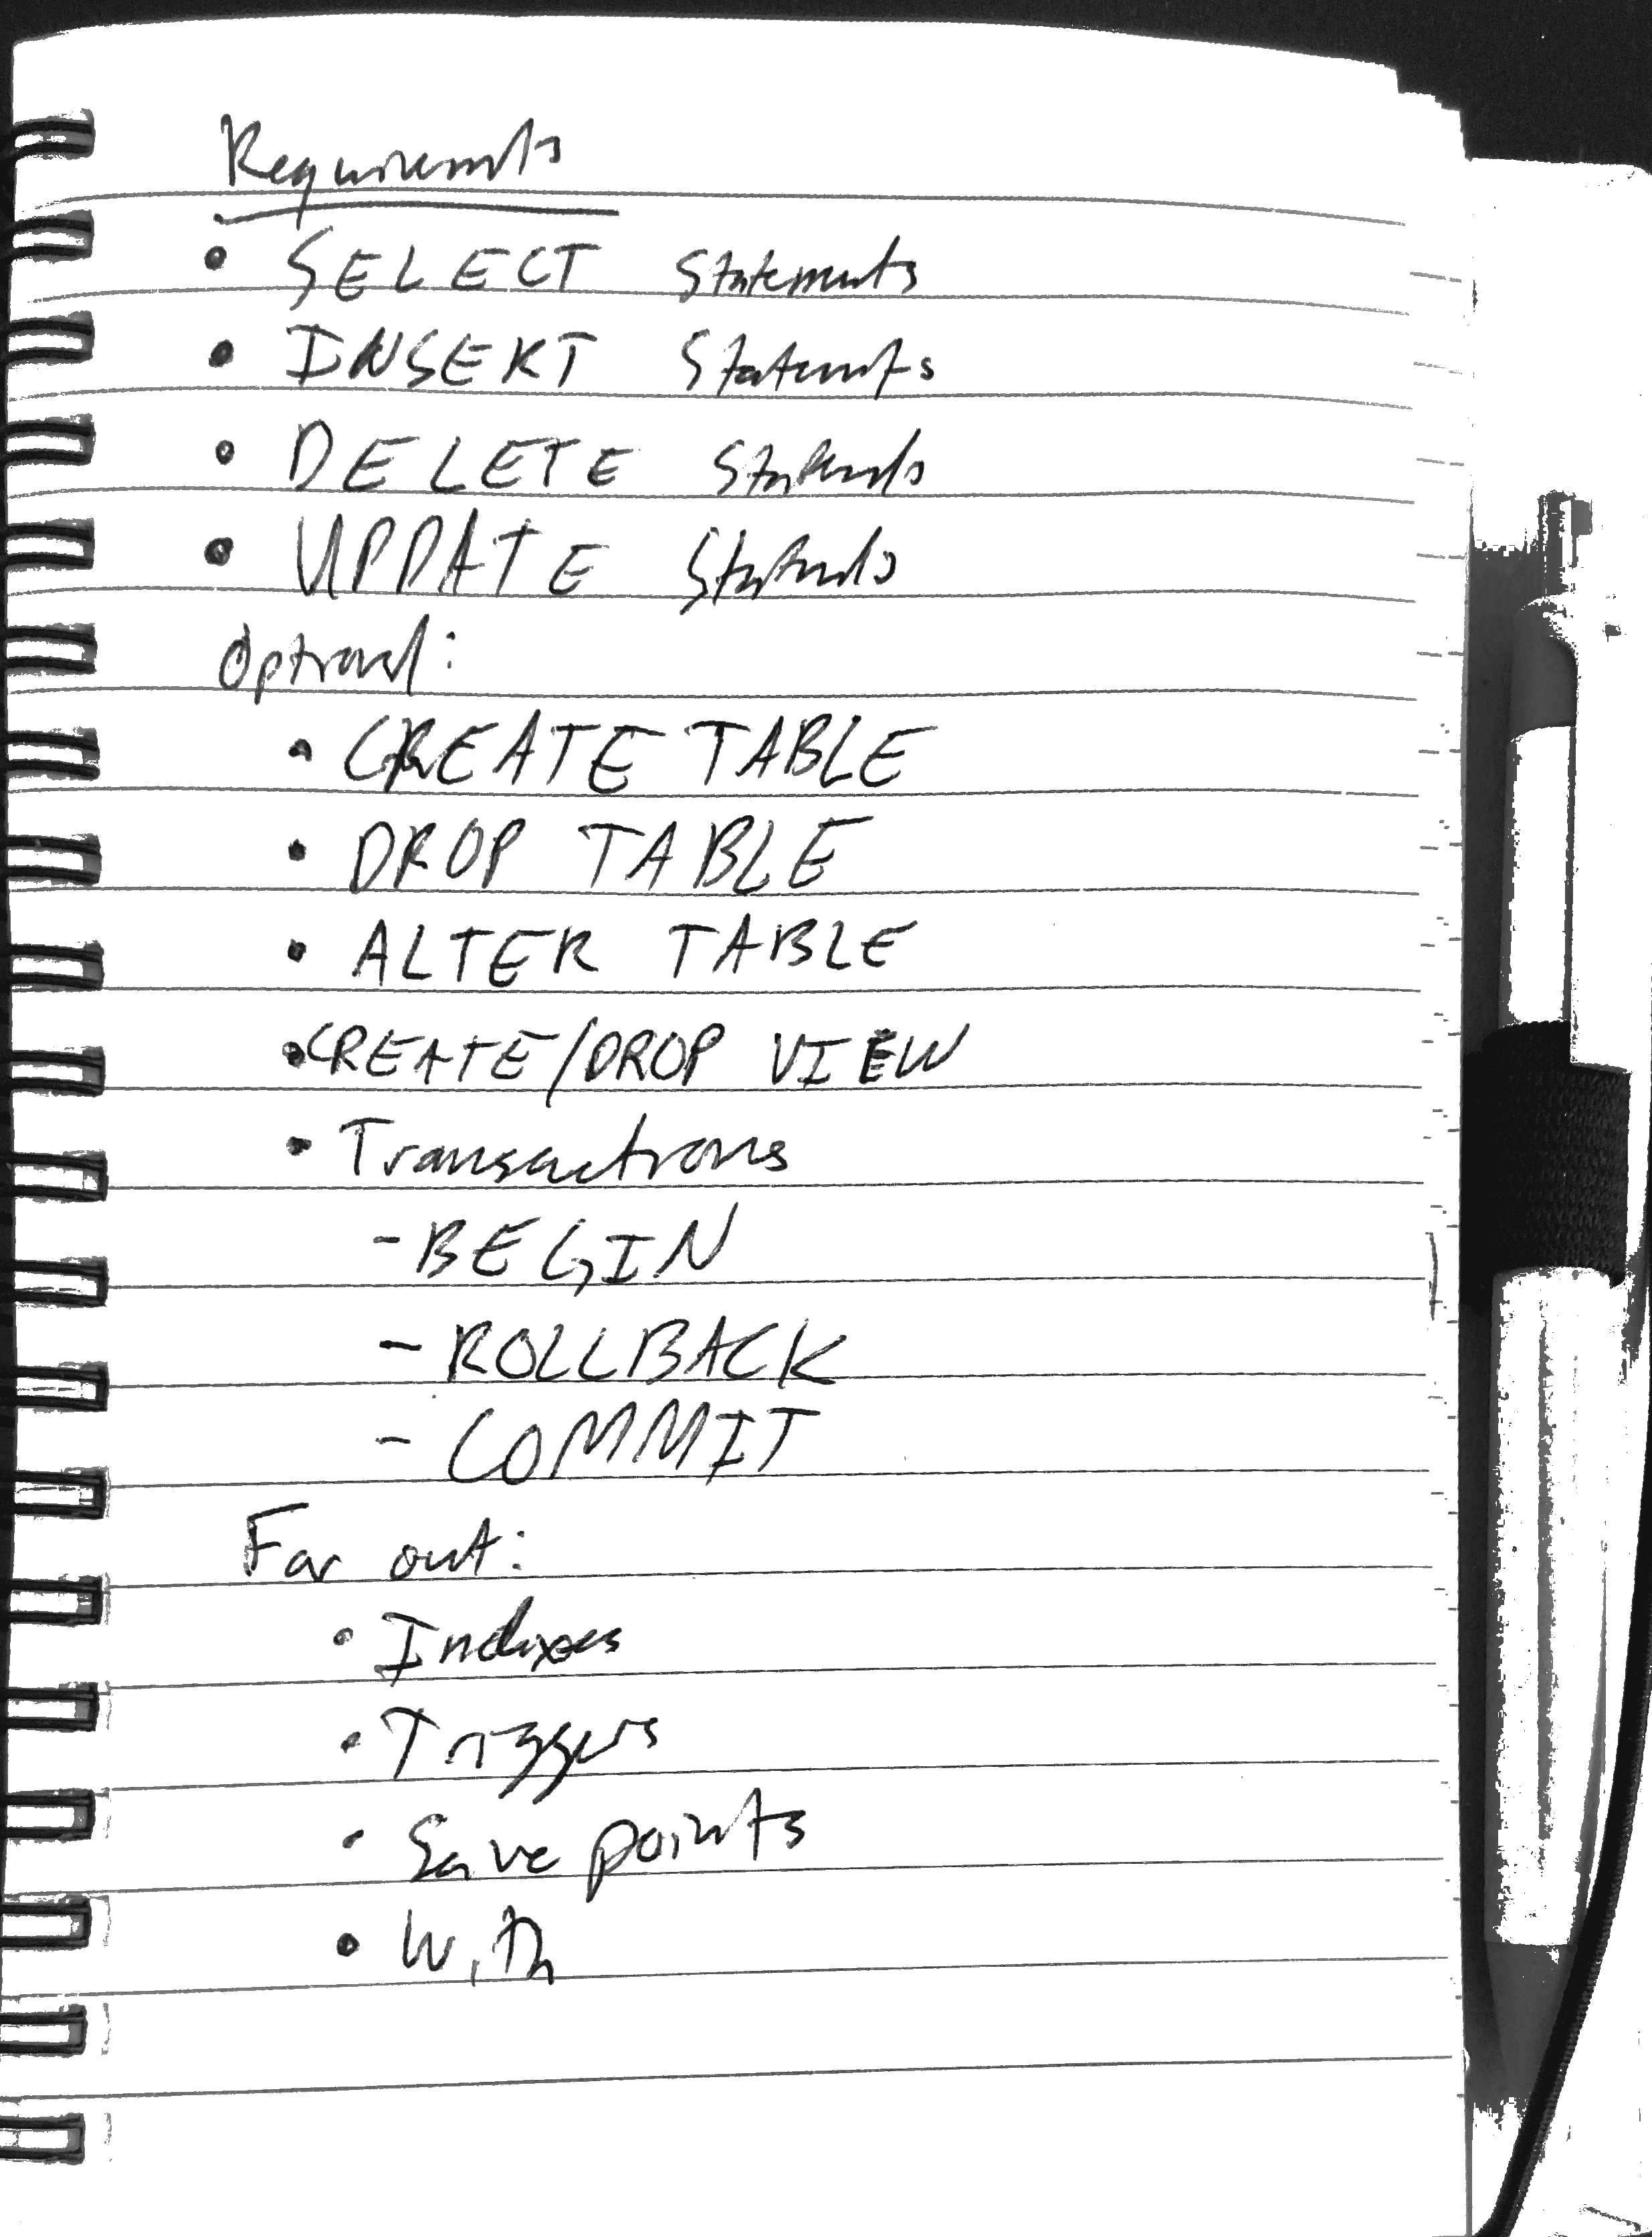 Requirements
• SELECT Statements
• INSERT Statements
• DELETE Statements
• UPDATE Statements
Optional:
• CREATE TABLE
• DROP TABLE
• ALTER TABLE
• CREATE/DROP VIEW
• Transactions
- BEGIN
- ROLLBACK
- COMMIT
Far out:
• Indexes
• Triggers
• Save points
• With